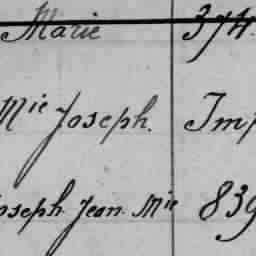 Marie 374.
Mie Joseph. Imp
oseph Jean Mie 839